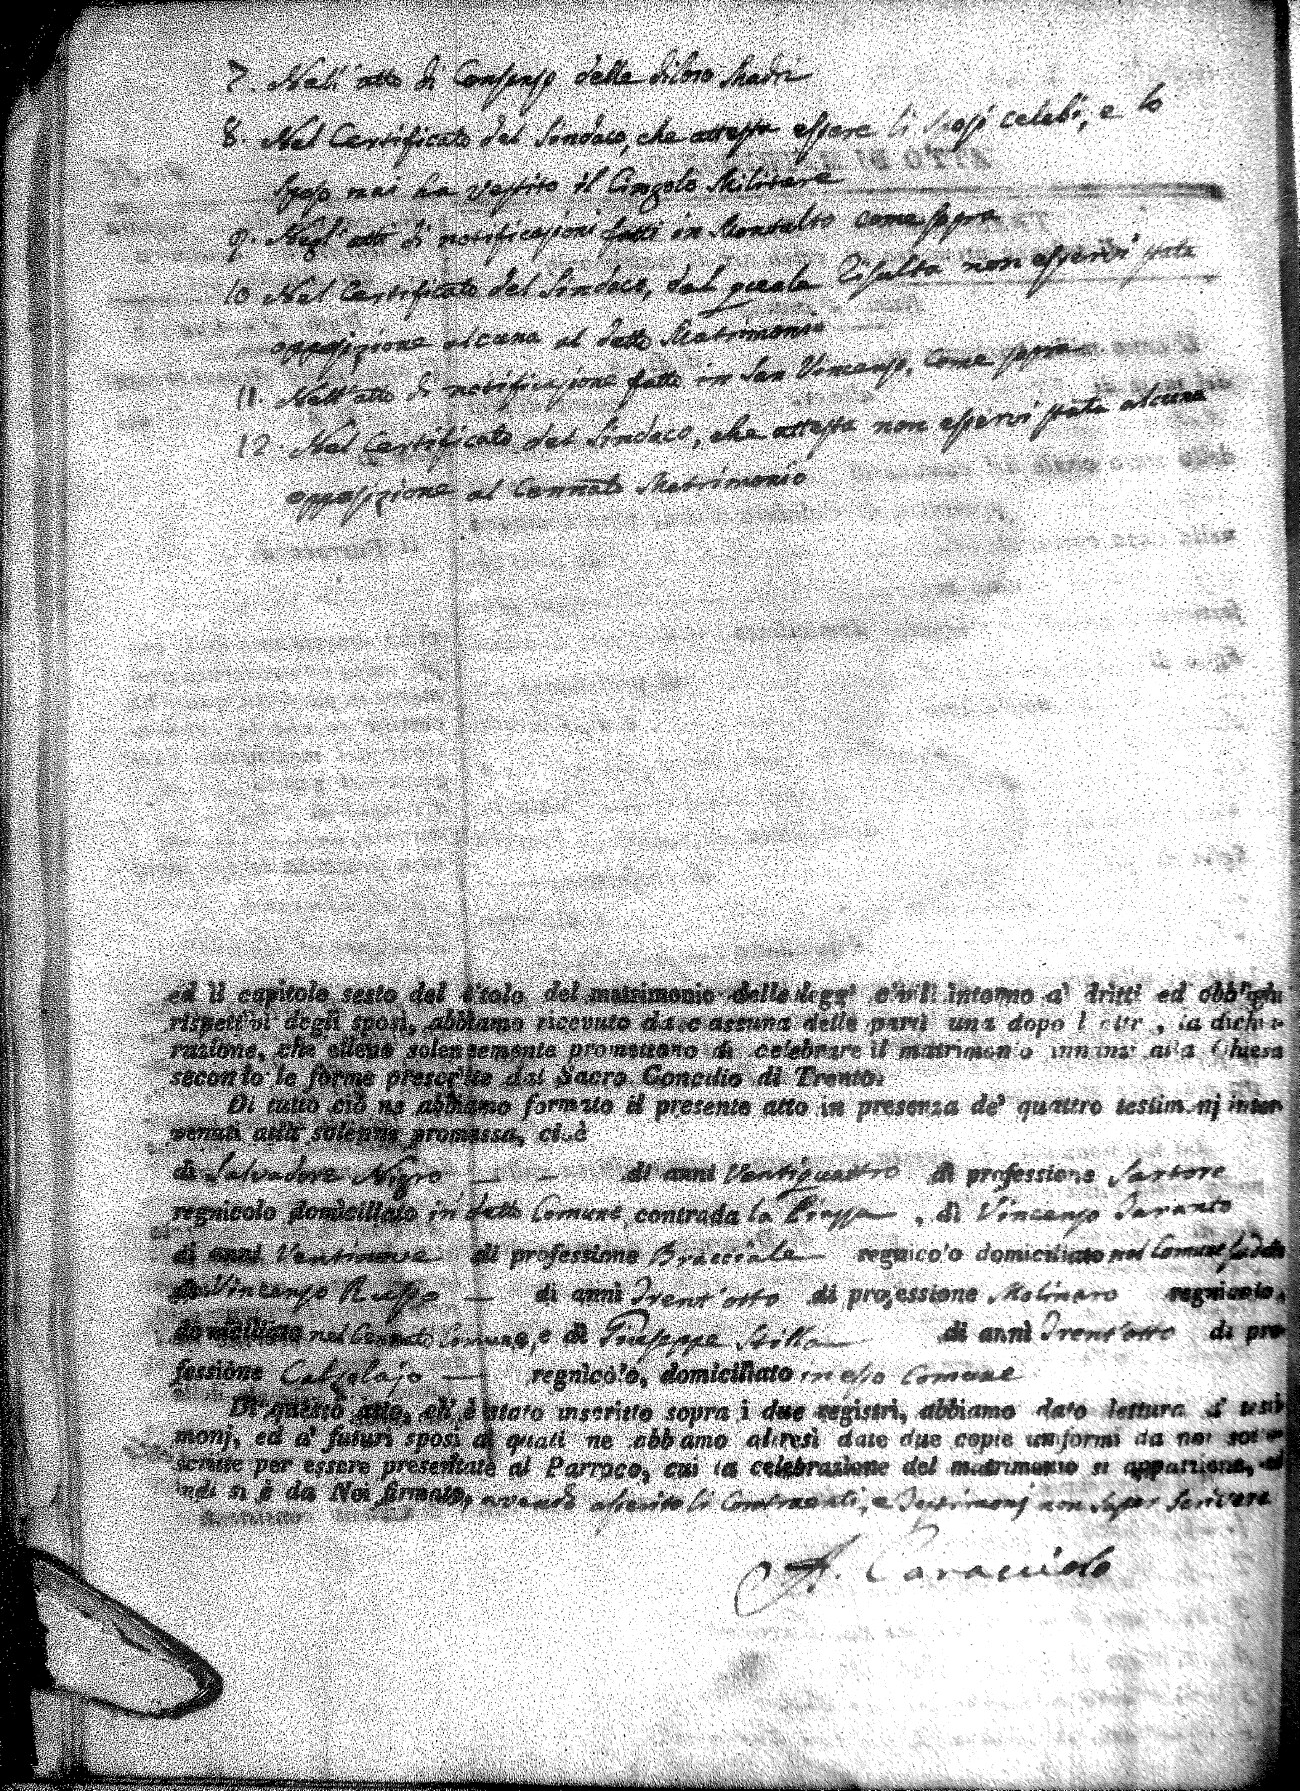 7. Nell'atto di Consenso delle diloro Madri
8. Nel Certificato del Sindaco, che attesta essere li sposi celebi, e lo
sposo mai ha vestito il Cingolo Militare
9. Negl'atti di notificazioni fatti in Montalto come sopra
10 Nel Certificato del Sindaco, dal quale risulta non esservi stata
opposizione alcuna al detto Matrimonio
11. Nell'atto di notificazione fatto in San Vincenzo, come sopra
12. Nel Certificato del Sindaco, che attesta non esservi stata alcuna
opposizione al Cennato Matrimonio
ed il capitolo sesto del titolo del matrimonio delle leggi civili intorno a' dritti ed obblighi
rispettivi degli sposi, abbiamo ricevuto da ciascuna delle parti una dopo l'altra, la dichia-
razione, che elleno solennemente promettono di celebrare il matrimonio innanzi alla Chiesa
secondo le forme prescritte dal Sacro Concilio di Trento.
Di tutto ciò ne abbiamo formato il presente atto in presenza de' quattro testimonj inter-
venuti alla solenne promessa, cioè
di Salvadore Nigro di anni Ventiquattro di professione Sartore
regnicolo domiciliato in detto Comune contrada la Piazza, di Vincenzo Taranto
di anni Ventinove di professione Bracciale regnicolo domiciliato nel Comune suddetto
di Vincenzo Russo di anni Trent'otto di professione Molinaro regnicolo,
domiciliato nel Cennato Comune, e di Giuseppe Stilla di anni Trent'otto di pro-
fessione Calzolajo regnicolo, domiciliato in esso Comune
Di questo atto, ch'è stato inscritto sopra i due registri, abbiamo dato lettura a' testi-
monj, ed a' futuri sposi a' quali ne abbiamo altresì date due copie uniformi da noi sotto-
scritte per essere presentate al Parroco, cui la celebrazione del matrimonio si appartiene, ed
indi si è da Noi firmato, avendo asserito li Contraenti, e Testimonj non saper scrivere
A. Caracciolo